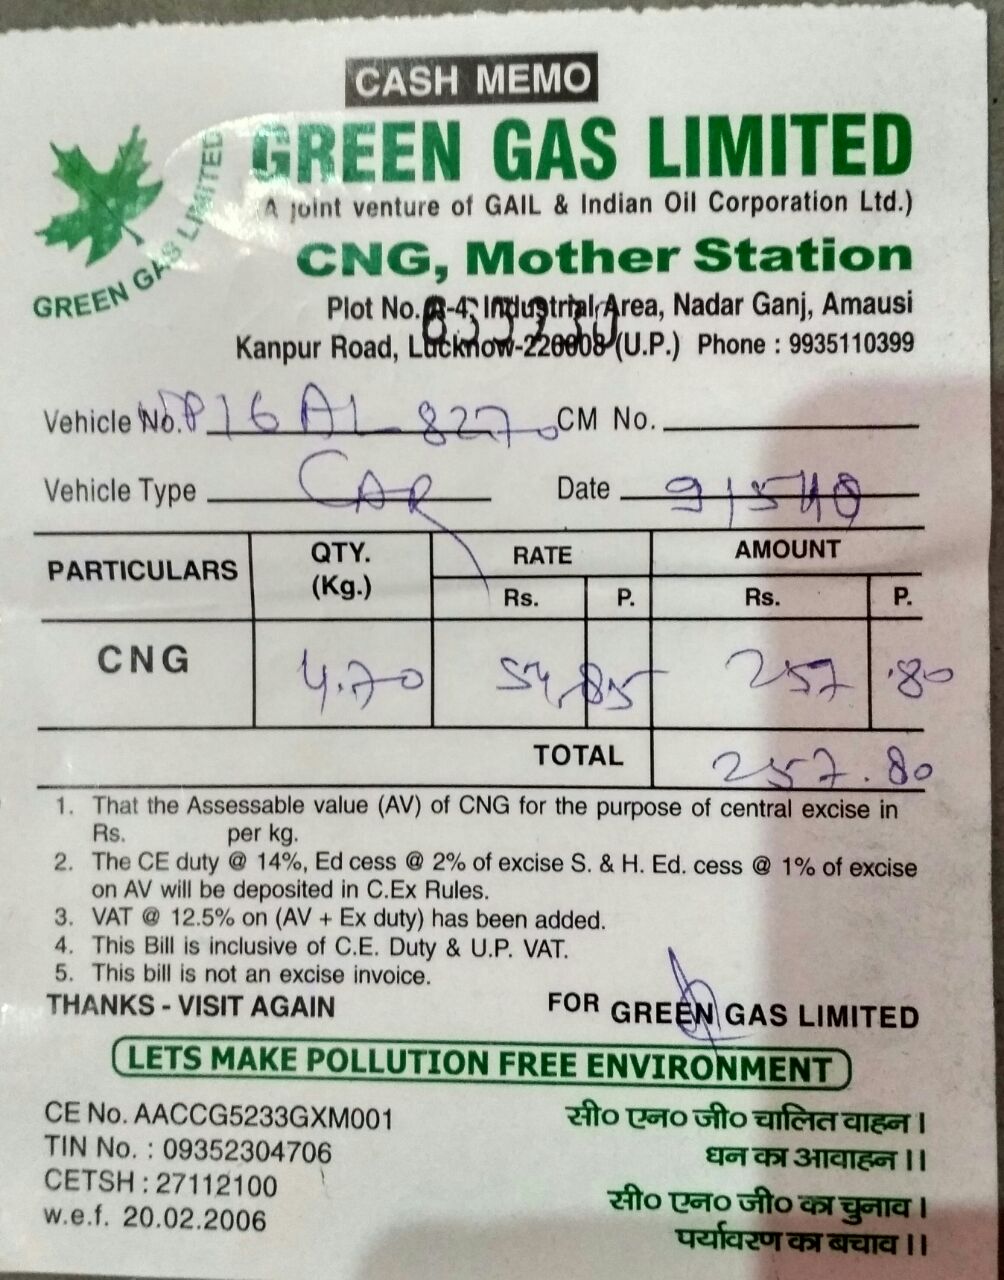 CASH MEMO
GREEN GAS LIMITED
GREEN GAS LIMITED
(A joint venture of GAIL & Indian Oil Corporation Ltd.)
CNG, Mother Station
Plot No. A-4, Industrial Area, Nadar Ganj, Amausi
Kanpur Road, Lucknow-226008 (U.P.) Phone : 9935110399
Vehicle No. UP16 AL 8270 CM No.
Vehicle Type CAR Date
PARTICULARS QTY. (Kg.) RATE Rs. P. AMOUNT Rs. P.
CNG 4.70 54.85 257 .80
TOTAL 257.80
1. That the Assessable value (AV) of CNG for the purpose of central excise in
Rs. per kg.
2. The CE duty @ 14%, Ed cess @ 2% of excise S. & H. Ed. cess @ 1% of excise
on AV will be deposited in C.Ex Rules.
3. VAT @ 12.5% on (AV + Ex duty) has been added.
4. This Bill is inclusive of C.E. Duty & U.P. VAT.
5. This bill is not an excise invoice.
THANKS - VISIT AGAIN FOR GREEN GAS LIMITED
LETS MAKE POLLUTION FREE ENVIRONMENT
CE No. AACCG5233GXM001
TIN No. : 09352304706
CETSH : 27112100
w.e.f. 20.02.2006
सी० एन० जी० चालित वाहन ।
धन का आवाहन ।।
सी० एन० जी० का चुनाव ।
पर्यावरण का बचाव ।।